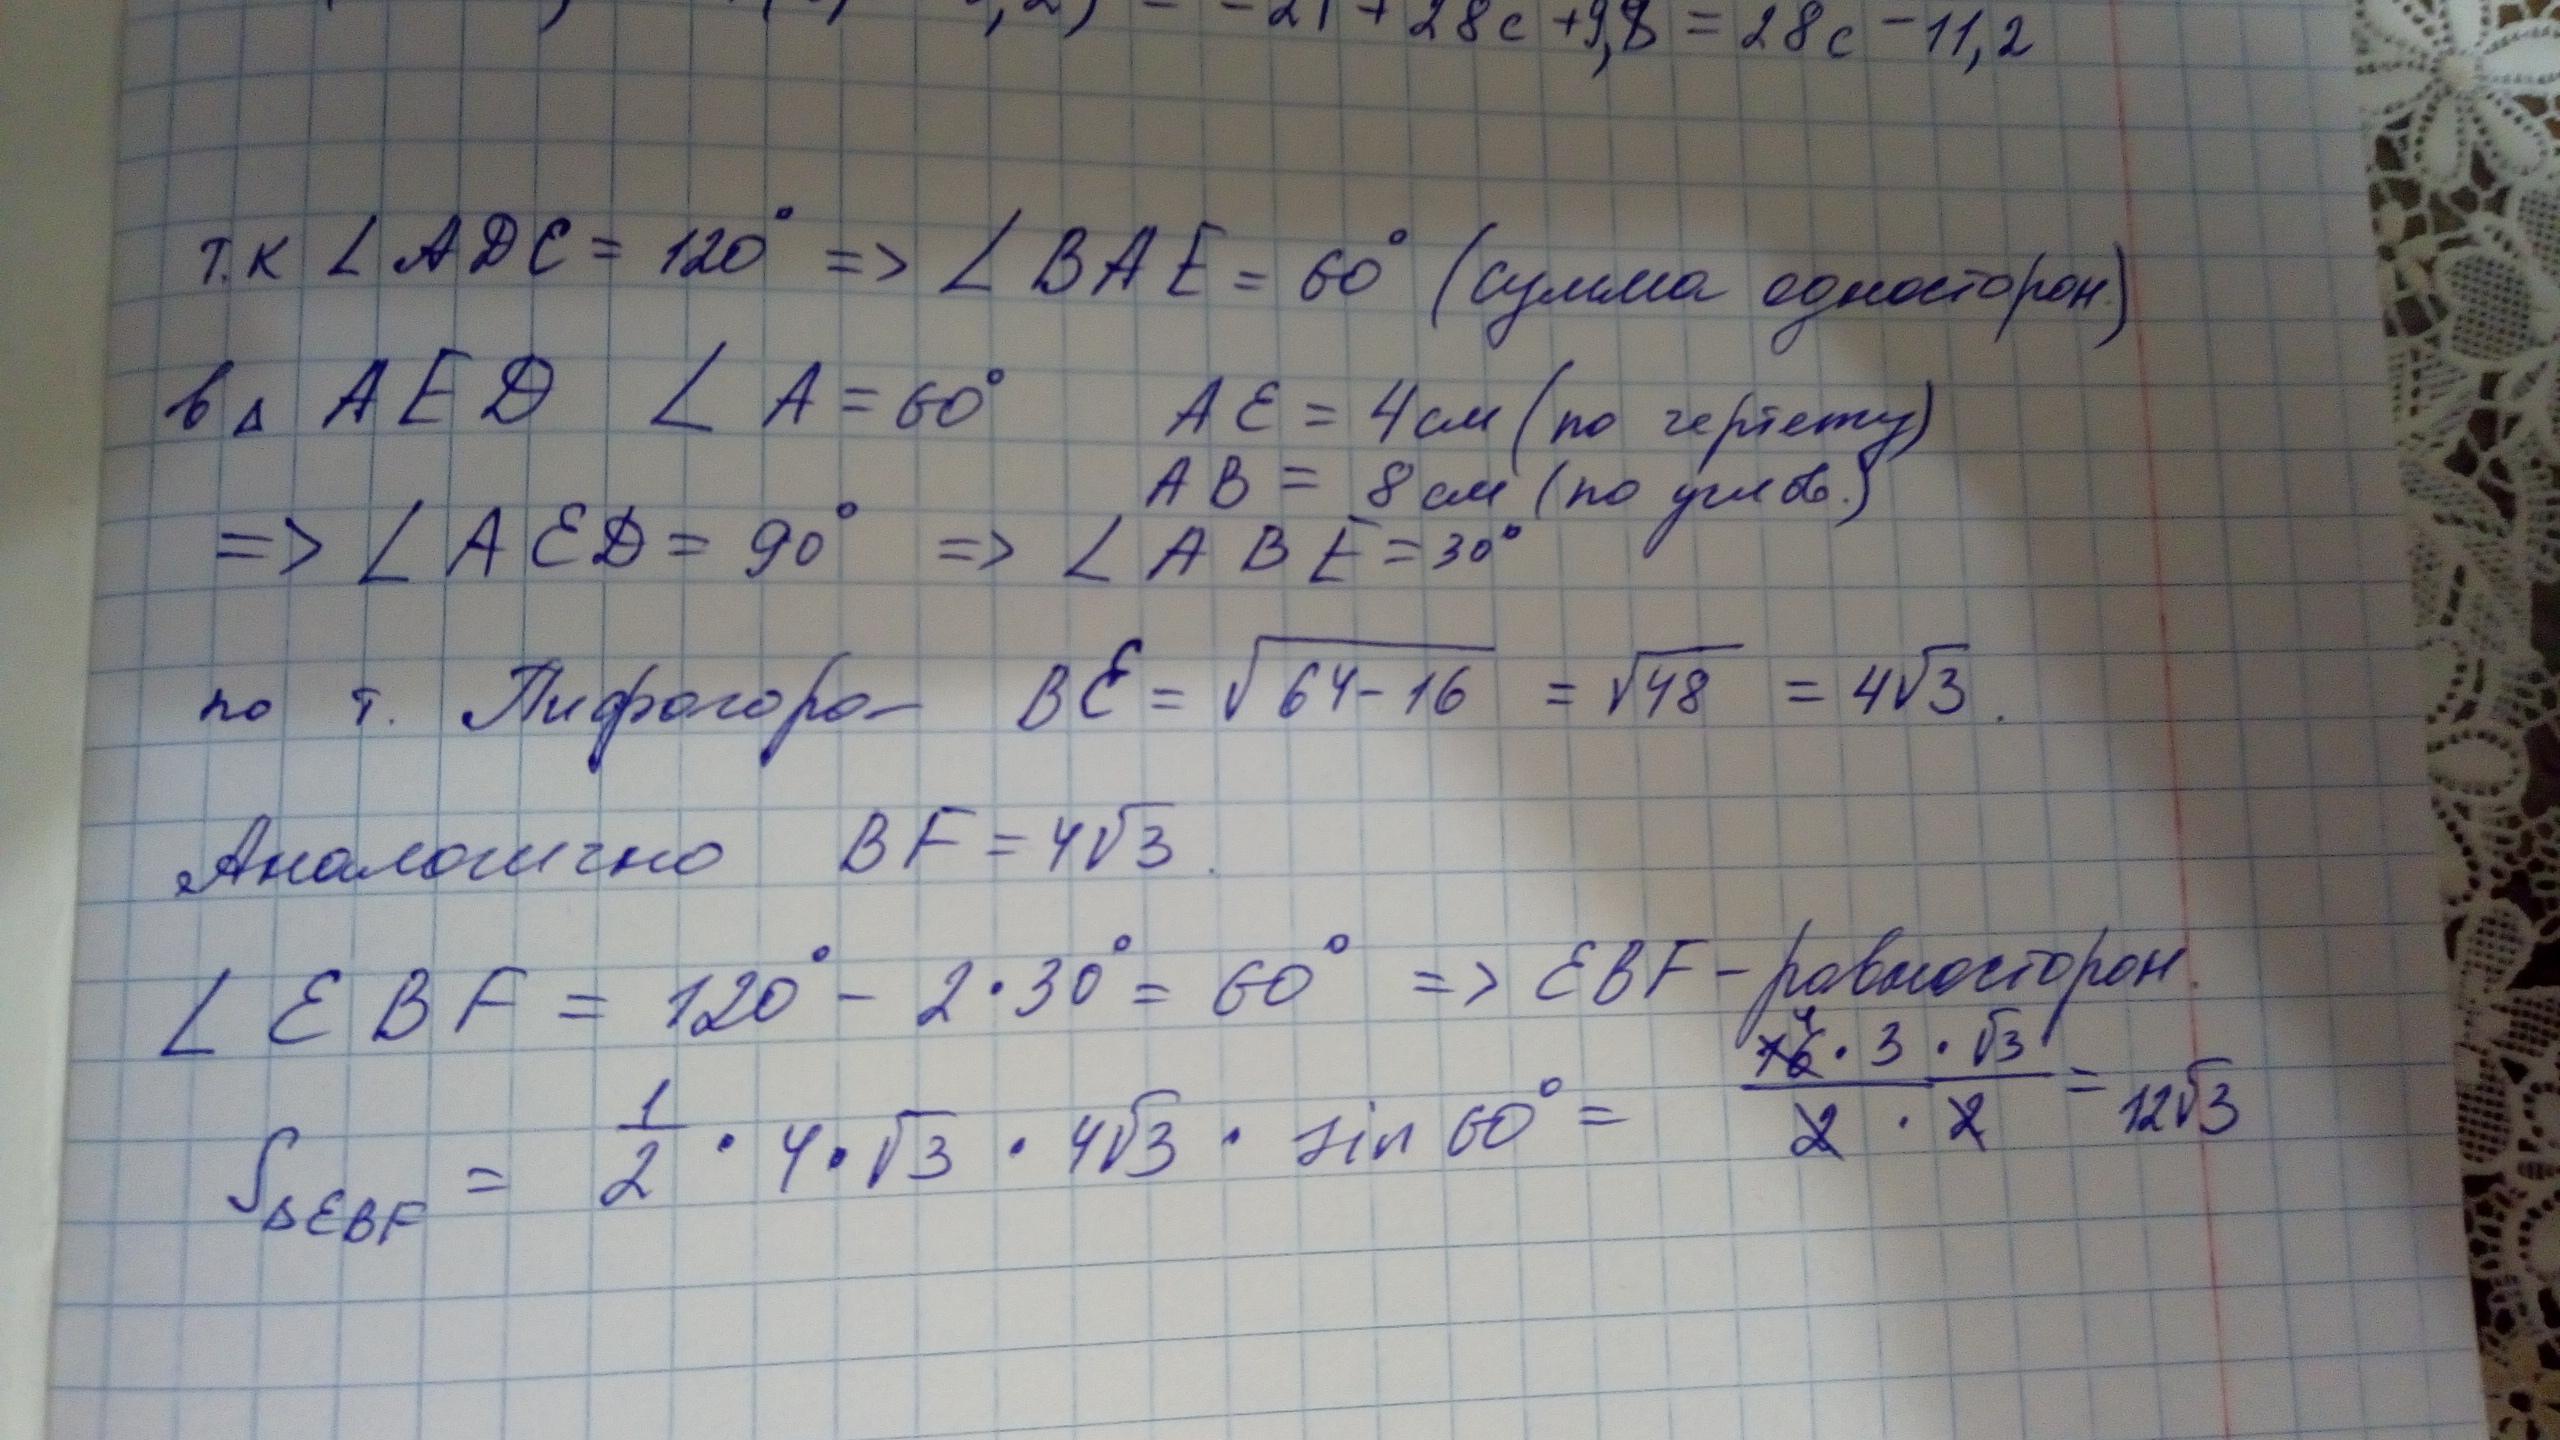 = -21 + 28c + 9,8 = 28c - 11,2
т.к ∠ADC = 120° => ∠BAE = 60° (сумма односторон.)
в △ AED ∠A = 60° AE = 4см (по чертежу)
AB = 8см (по услов.)
=> ∠AED = 90° => ∠ABE = 30°
по т. Пифагора BE = √64-16 = √48 = 4√3.
Аналогично BF = 4√3.
∠EBF = 120° - 2·30° = 60° => EBF - равносторон.
S△EBF = 1/2 · 4·√3 · 4√3 · sin 60° = 16 4 · 3 · √3 / 2 · 2 = 12√3